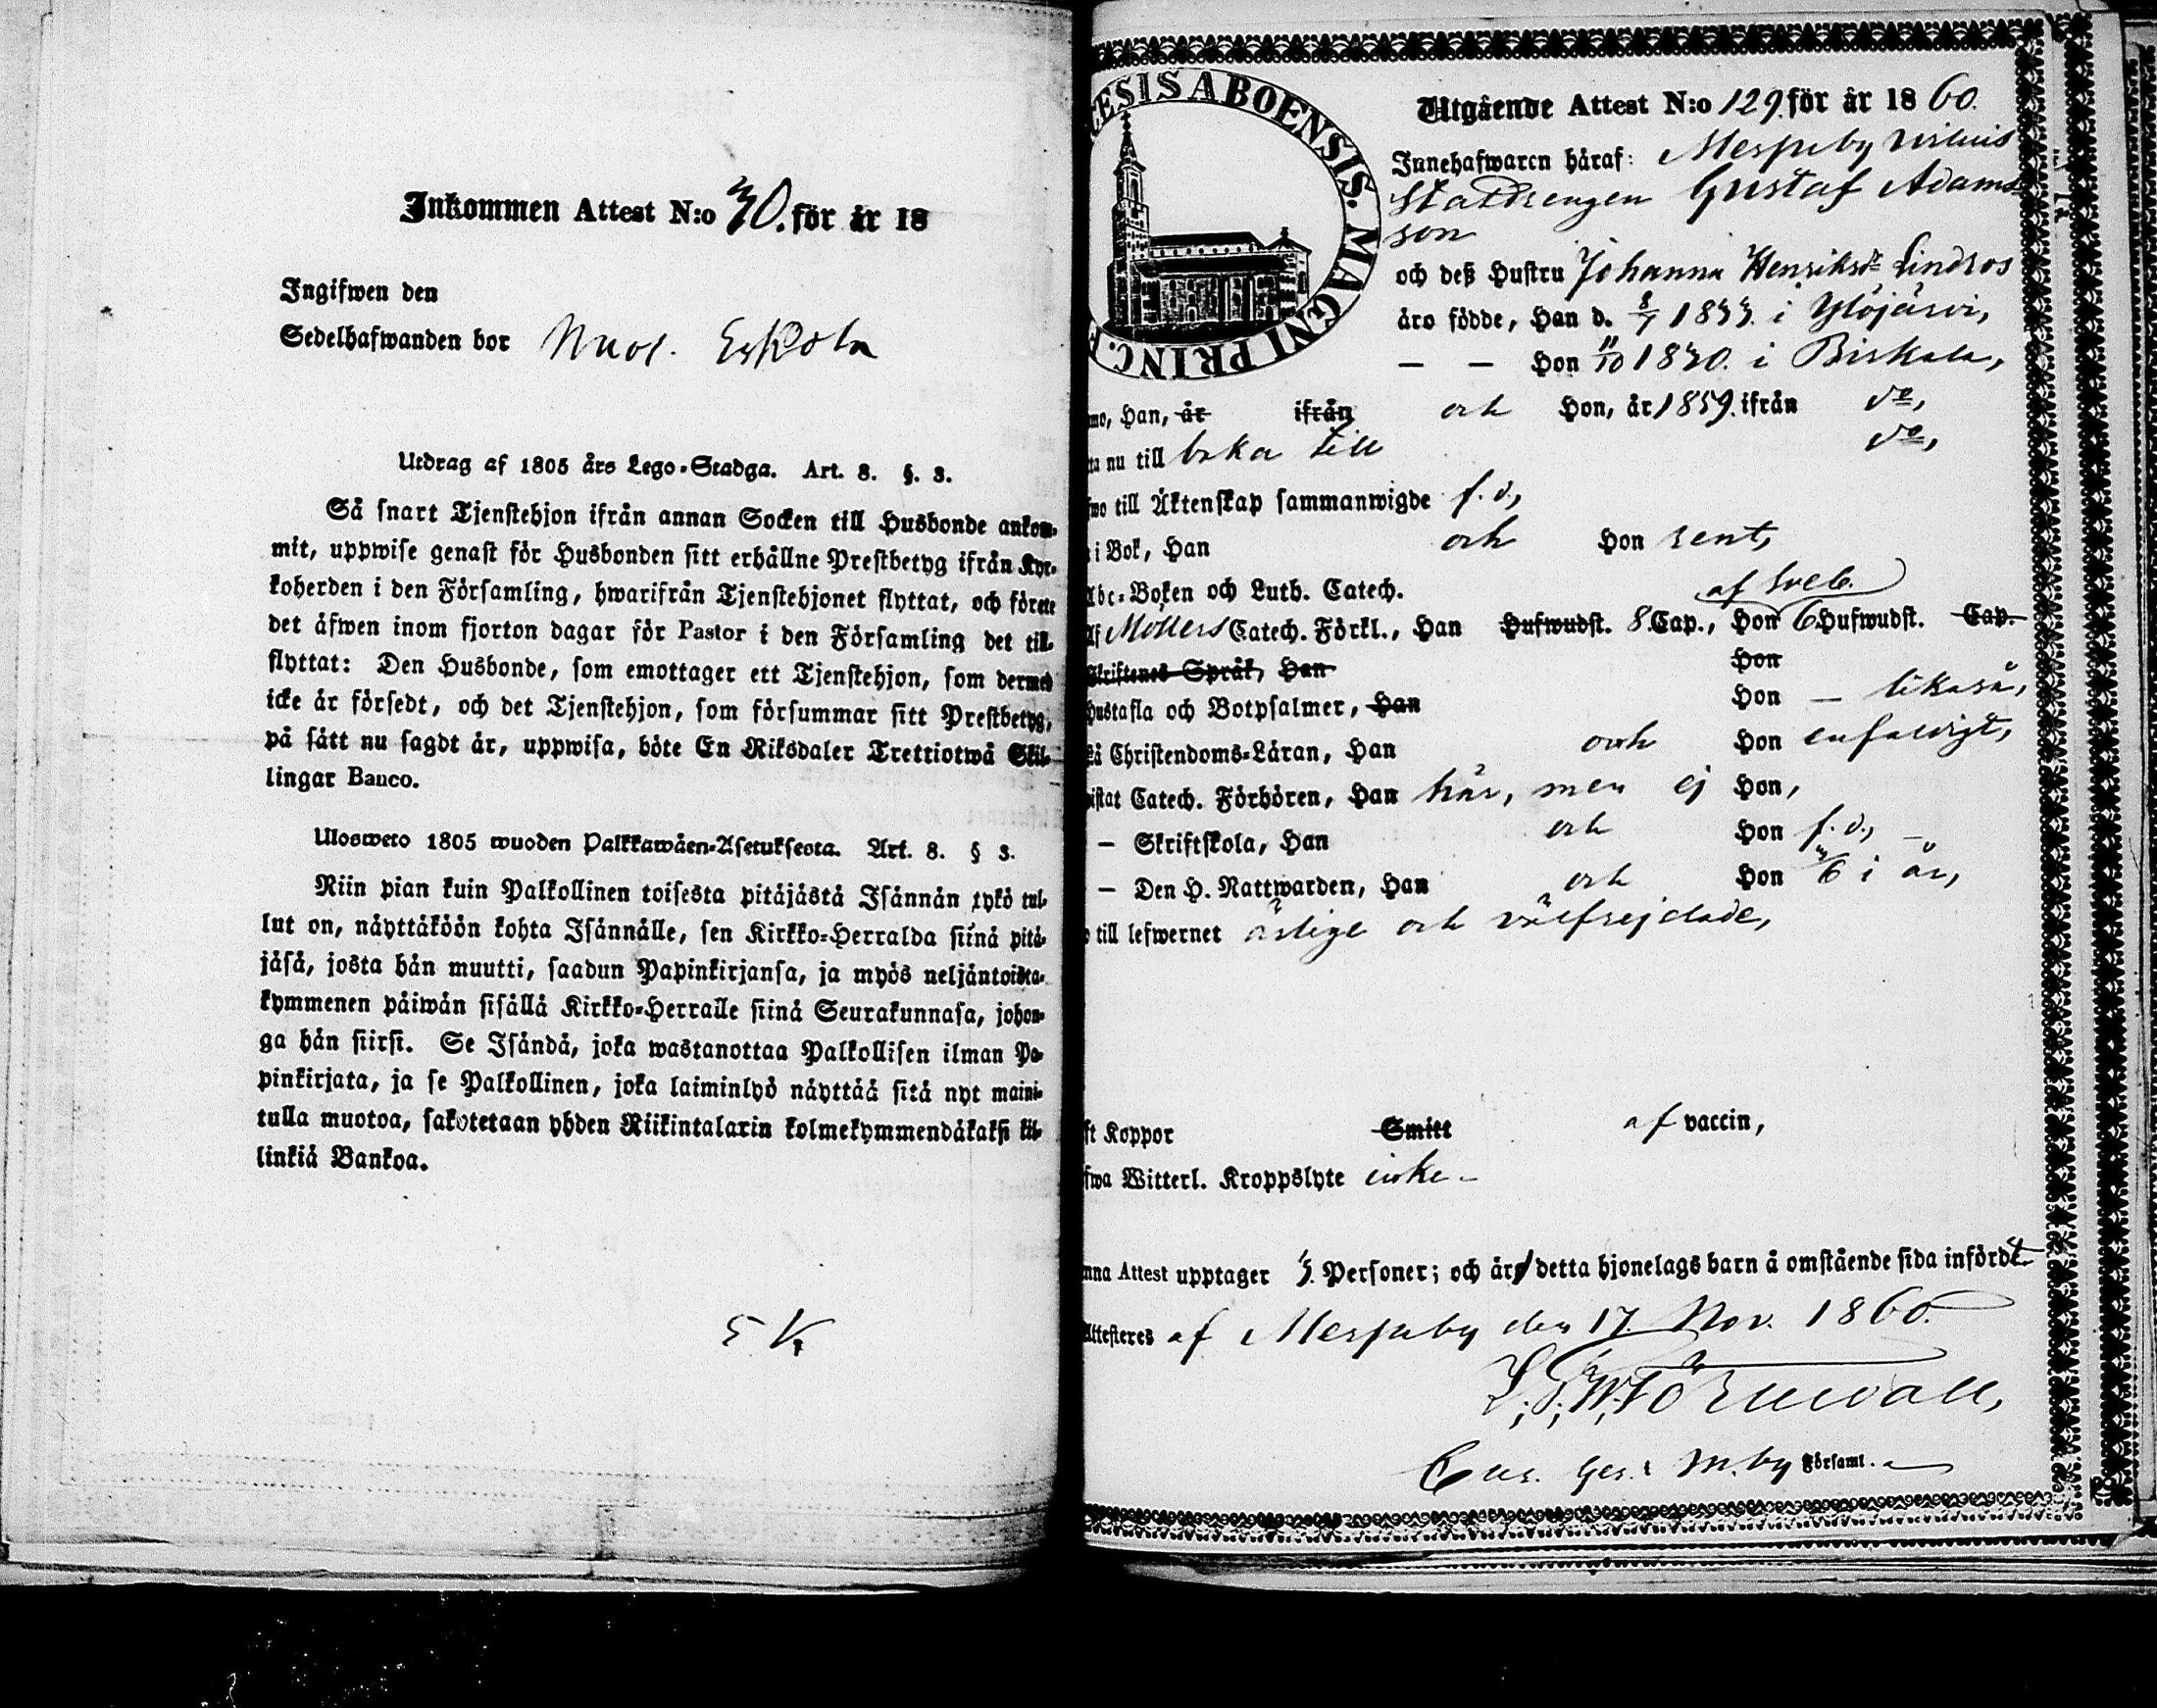 Inkommen Attest N:o 30. för år 18
Ingifwen den
Sedelhafwanden bor Nuol. Eskola
Utdrag af 1805 års Lego-Stadga. Art. 8. §. 3.
Så snart Tjenstehjon ifrån annan Socken till Husbonde ankom-
mit, uppwise genast för Husbonden sitt erhållne Prestbetyg ifrån Kyr-
koherden i den Församling, hwarifrån Tjenstehjonet flyttat, och förete
det äfwen inom fjorton dagar för Pastor i den Församling det till-
flyttat: Den Husbonde, som emottager ett Tjenstehjon, som dermed
icke är försedt, och det Tjenstehjon, som försummar sitt Prestbetyg,
på sätt nu sagdt är, uppwisa, böte En Riksdaler Trettiotwå Skil-
lingar Banco.
Ulosweto 1805 wuoden Palkkawäen-Asetuksesta. Art. 8. § 3.
Niin pian kuin Palkollinen toisesta pitäjästä Isännän tykö tul-
lut on, näyttäköön kohta Isännälle, sen Kirkko-Herralda siinä pitä-
jäsä, josta hän muutti, saadun Papinkirjansa, ja myös neljäntoista-
kymmenen päiwän sisällä Kirkko-Herralle siinä Seurakunnasa, johon-
ga hän siirsi. Se Isändä, joka wastanottaa Palkollisen ilman Pa-
pinkirjata, ja se Palkollinen, joka laiminlyö näyttää sitä nyt maini-
tulla muotoa, sakotetaan yhden Riikintalarin kolmekymmendäkaksi kil-
linkiä Bankoa.
5 K
CESIS ABOENSIS. MAGNI PRINC. F
Utgående Attest N:o 129. för år 1860.
Innehafwaren häraf: Messuby
Statdrengen Gustaf Adams
son
och deß Hustru Johanna Henriksdr Lindros
äro födde, Han d. 8/7 1833. i Ylöjärvi,
— — Hon 11/10 1830. i Birkala,
mo, Han, år ifrån och Hon, år 1859. ifrån do,
ta nu till baka till do,
fwo till Äktenskap sammanwigde f. d.,
i Bok, Han och Hon rent,
Abc-Boken och Luth. Catech.
af Sveb.
Af Möllers Catech. Förkl., Han Hufwudst. 8. Cap., Hon 6 Hufwudst. Cap.
Skriftenes Språk, Han Hon
Hustafla och Botpsalmer, Han Hon — likaså,
Christendoms-Läran, Han och Hon enfaldigt,
istat Catech. Förhören, Han här, men ej Hon,
— Skriftskola, Han och Hon f. d., —
— Den H. Nattwarden, Han och Hon i år,
till lefwernet ärlige och välfrejdade,
ft Koppor Smitt af vaccin,
fwa Witterl. Kroppslyte icke —
nna Attest upptager 3. Personer; och är detta hjonelags barn å omstående sida infördt.
Attesteres af Messuby den 17. Nov. 1860.
L. G. W. Törnwall,
M.by Församl.